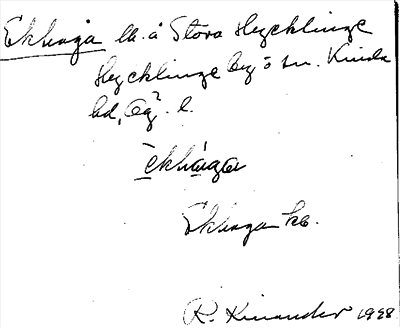 Ekhaga lh. å Stora Hycklinge
Hycklinge by o sn. Kinda
hd, Ög. l.
èkhàga
Ekhagen ko.
R. Kinander 1928